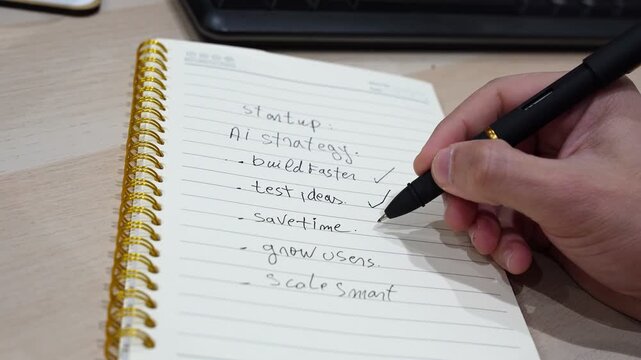 startup:
Ai strategy.
- build Faster ✓
- test ideas. ✓
- save time.
- grow users.
- scale smart